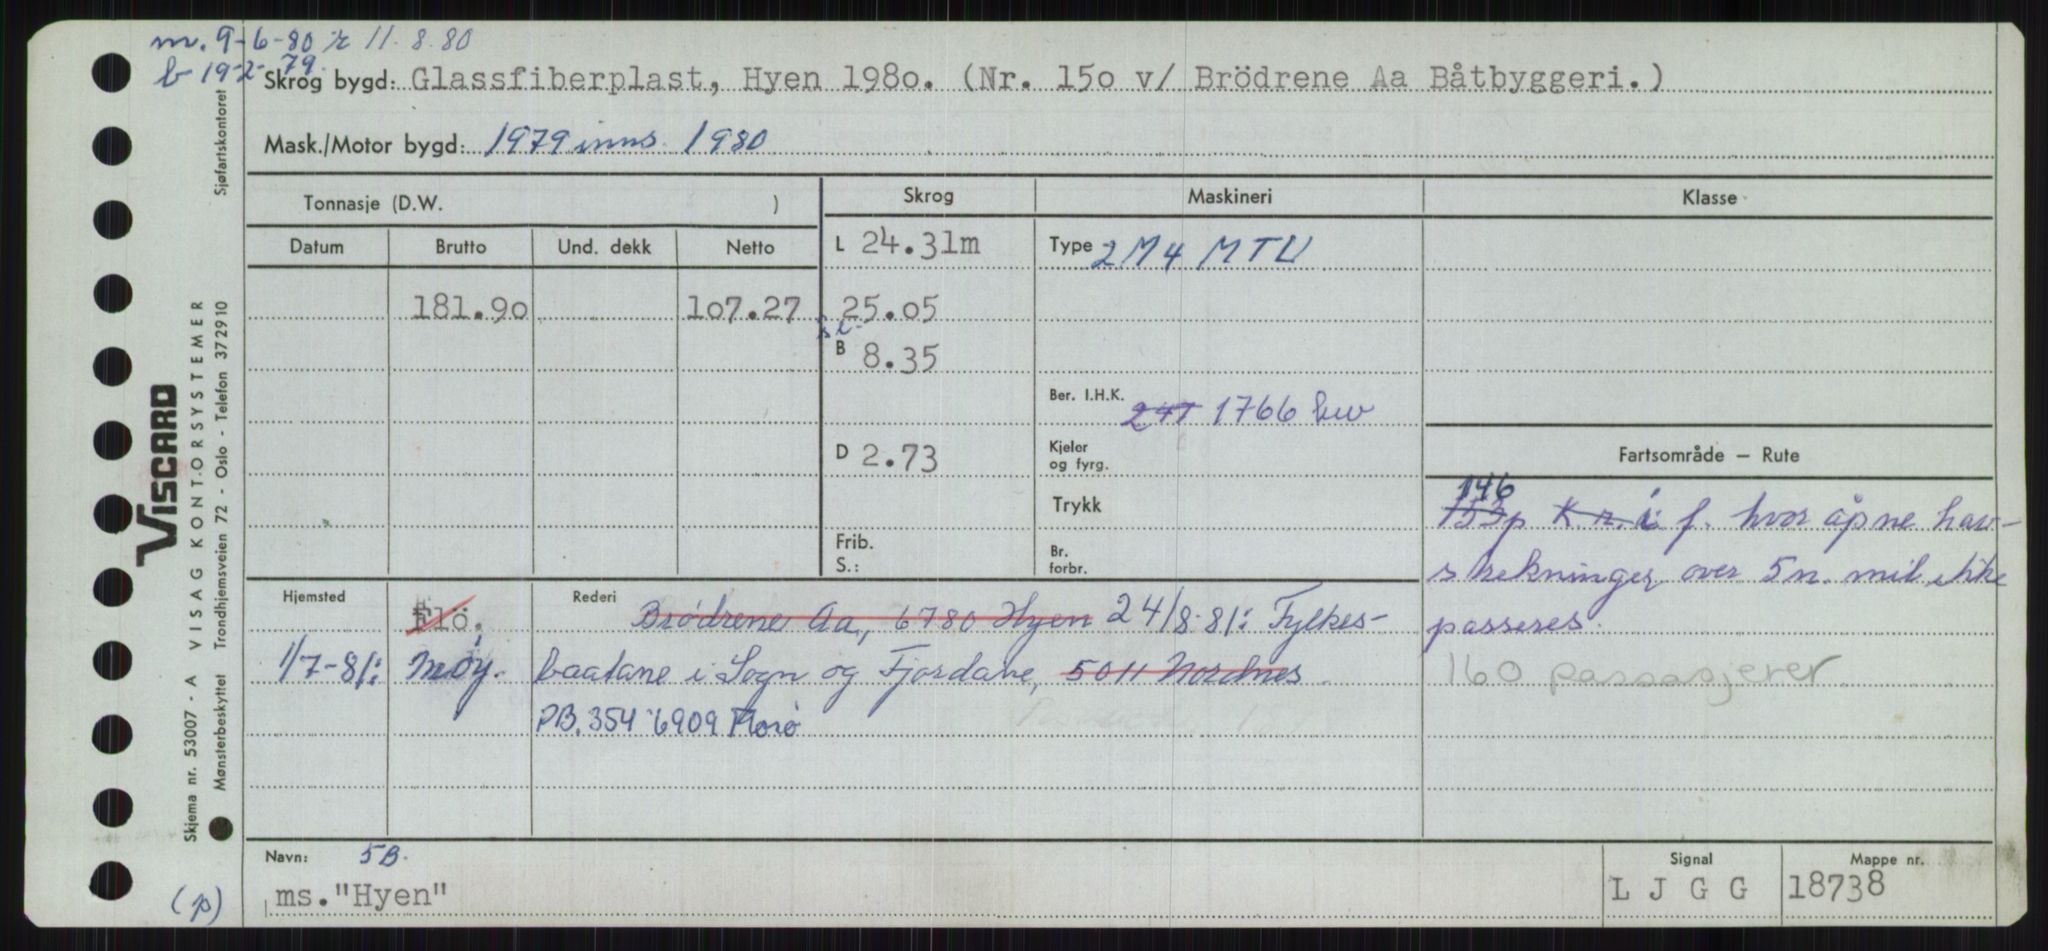 m. 9-6-80 r 11.8.80
b 19-2-79.
Skrog bygd: Glassfiberplast, Hyen 1980. (Nr. 150 v/ Brödrene Aa Båtbyggeri.)
Mask./Motor bygd: 1979 inns. 1980
Tonnasje (D.W. )
Skrog
Maskineri
Klasse
Datum Brutto Und. dekk Netto
L 24.31m
Type 2 M 4 MTU
181.90 107.27 25.05
B 8.35
Ber. I.H.K. 1766 kw
D 2.73
Kjeler og fyrg.
Trykk
Frib.
S.:
Br. forbr.
Fartsområde – Rute
146
153p K.r. i f. hvor åpne hav-
strekninger over 5 n. mil ikke
passeres.
160 passasjerer
Hjemsted Flö. Rederi Brödrene Aa, 6780 Hyen 24/8-81: Fylkes-
1/7-81: Möy. baatane i Sogn og Fjordane, 5011 Nordnes.
PB. 354 6909 Florø
Navn: 5B.
ms."Hyen"
Signal
L J G G
Mappe nr.
18738
(p)
VISCARD
Skjema nr. 53007 - A VISAG KONTORSYSTEMER
Mønsterbeskyttet Trondhjemsveien 72 - Oslo - Telefon 372910 Sjøfartskontoret